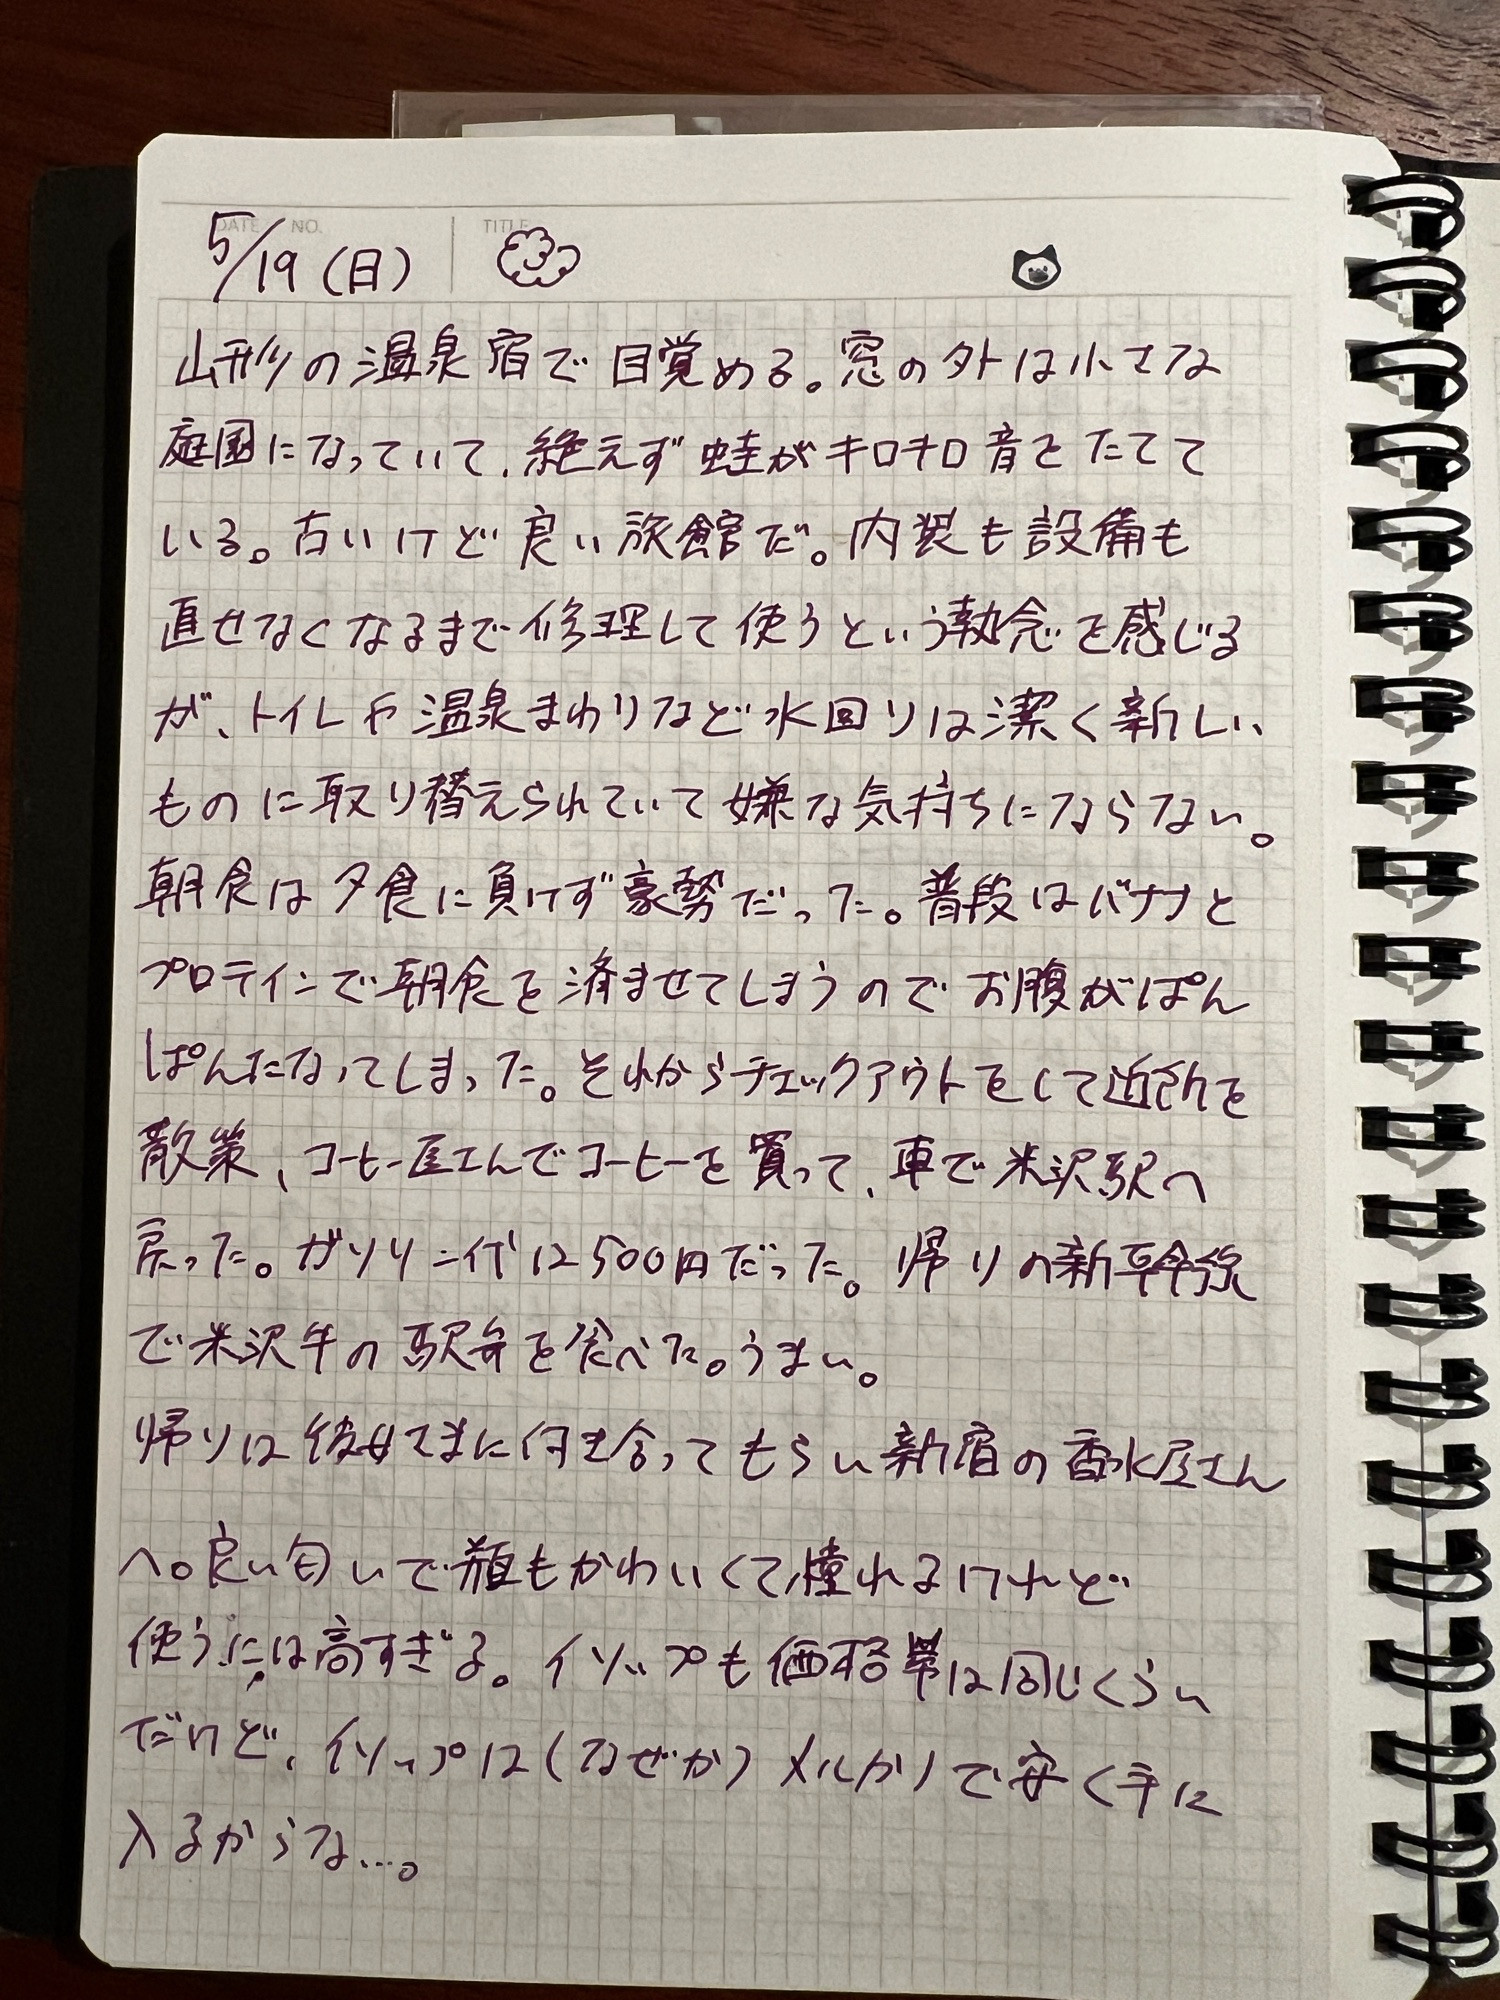 DATE NO. TITLE
5/19(日)
山形の温泉宿で目覚める。窓の外は小さな
庭園になっていて、絶えず蛙がキロキロ音をたてて
いる。古いけど良い旅館だ。内装も設備も
直せなくなるまで修理して使うという執念を感じる
が、トイレや温泉まわりなど水回りは潔く新しい
ものに取り替えられていて嫌な気持ちにならない。
朝食は夕食に負けず豪勢だった。普段はバナナと
プロテインで朝食を済ませてしまうのでお腹がぱん
ぱんになってしまった。それからチェックアウトをして近所を
散策、コーヒー屋さんでコーヒーを買って、車で米沢駅へ
戻った。ガソリン代は500円だった。帰りの新幹線
で米沢牛の駅弁を食べた。うまい。
帰りは彼女さまに付き合ってもらい新宿の香水屋さん
へ。良い匂いで瓶もかわいくて憧れるけれど
使うには高すぎる。イソップも価格帯は同じくらい
だけど、イソップは(なぜか)メルカリで安く手に
入るからな…。